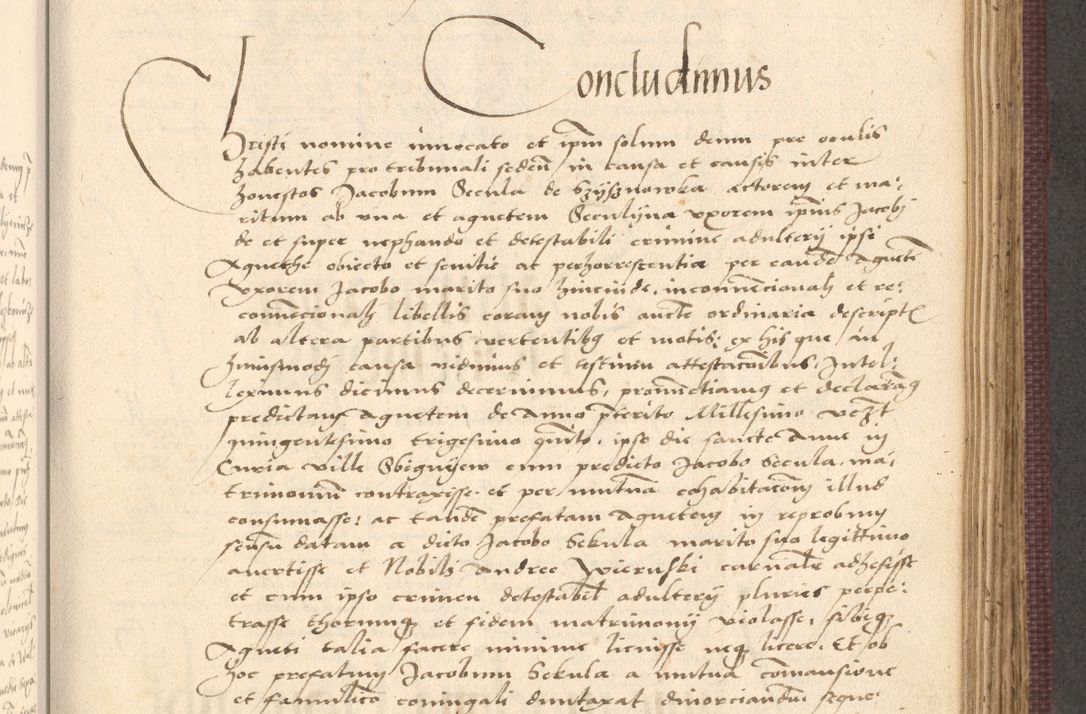 Concludimus
Christi nomine invocato et ipm solum deum pre oculis
habentes pro tribunali seden in causa et causis inter
honestos Jacobum Secula de Szyssnowka actorem et ma-
ritum ab una et agnetem Seculyna uxorem ipius Jacobi
de et super nephando et detestabili crimine adulterij ipsi
Agnethe obiecto et sevitie ac perhorrescentia per eande Agnete
uxorem Jacobo marito suo hincinde, inconvencionali et re-
convencionali libellis coram nobis aucte ordinaria descript
ab altera partibus vertentibq et motis: ex his que in
huiusmodi causa vidimus et testium attestacõibus, Intel-
leximus dicimus decernimus, pronunctiamq et declaramq
predictam Agnetem de Anno pterito Millesimo
quingentesimo trigesimo quinto, ipso die sancte Anne in
Curia ville Sbignijew cum predicto Jacobo Secula, ma-
trimonium contraxisse. et per mutua cohabitacoem illud
consumasse: ac tande prefatam Agnetem in reprobum
sensu datam a dicto Jacobo Sekula marito suo legittimo
avertisse et Nobili Andree Wieruski carnalr adhesisse
et cum ipso crimen detestabile adulterij pluries perpe-
trasse thorumq et fidem matrimonij violasse, sibiq
Agneti talia facere minime licuisse neq licere. Et ob
hoc prefatum Jacobum Sekula a mutua comansione
et famulico coniugali duntaxat divorciandu seque-